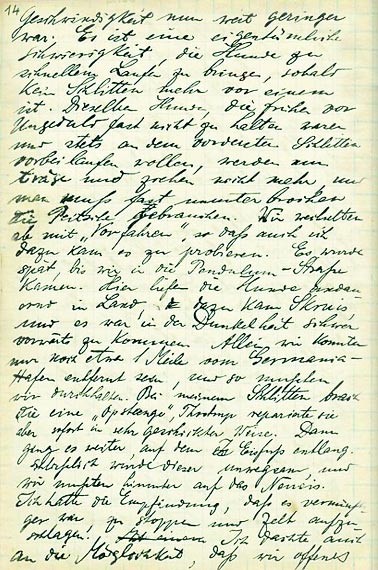 14
Geschwindigkeit nun weit geringer
war. Es ist eine eigentümliche
Schwierigkeit, die Hunde zu
schnellem Laufen zu bringen, sobald
kein Schlitten mehr vor einem
ist. Dieselben Hunde, die früher vor
Ungeduld fast nicht zu halten waren
und stets an dem vorderen Schlitten
vorbeilaufen wollen, werden nun
träge und ziehen nicht mehr und
man muss fast ununterbrochen
die Peitsche gebrauchen. Wir wechselten
ab mit „Vorfahren", so daß auch ich
dazu kam es zu probieren. Es wurde
spät, bis wir in die Pendulum-Straße
kamen. Hier liefen die Hunde
und in Land, dazu kam
und es war in der Dunkelheit schwer
vorwärts zu kommen. Allein wir konnten
nur noch etwa 1 Meile vom Germania-
Hafen entfernt sein, und so mußten
wir durchhalten. Bei meinem Schlitten brach
die eine „Opstange". reparierte sie
aber sofort in sehr geschickter Weise. Dann
ging es weiter, auf dem Eisfuß entlang.
Schließlich wurde dieser unwegsam, und
wir mußten hinunter auf das Neueis.
Ich hatte die Empfindung, daß es vernünf-
ger war, zu stoppen und Zelt aufzu-
schlagen. Ich dachte auch
an die Möglichkeit, daß wir offenes